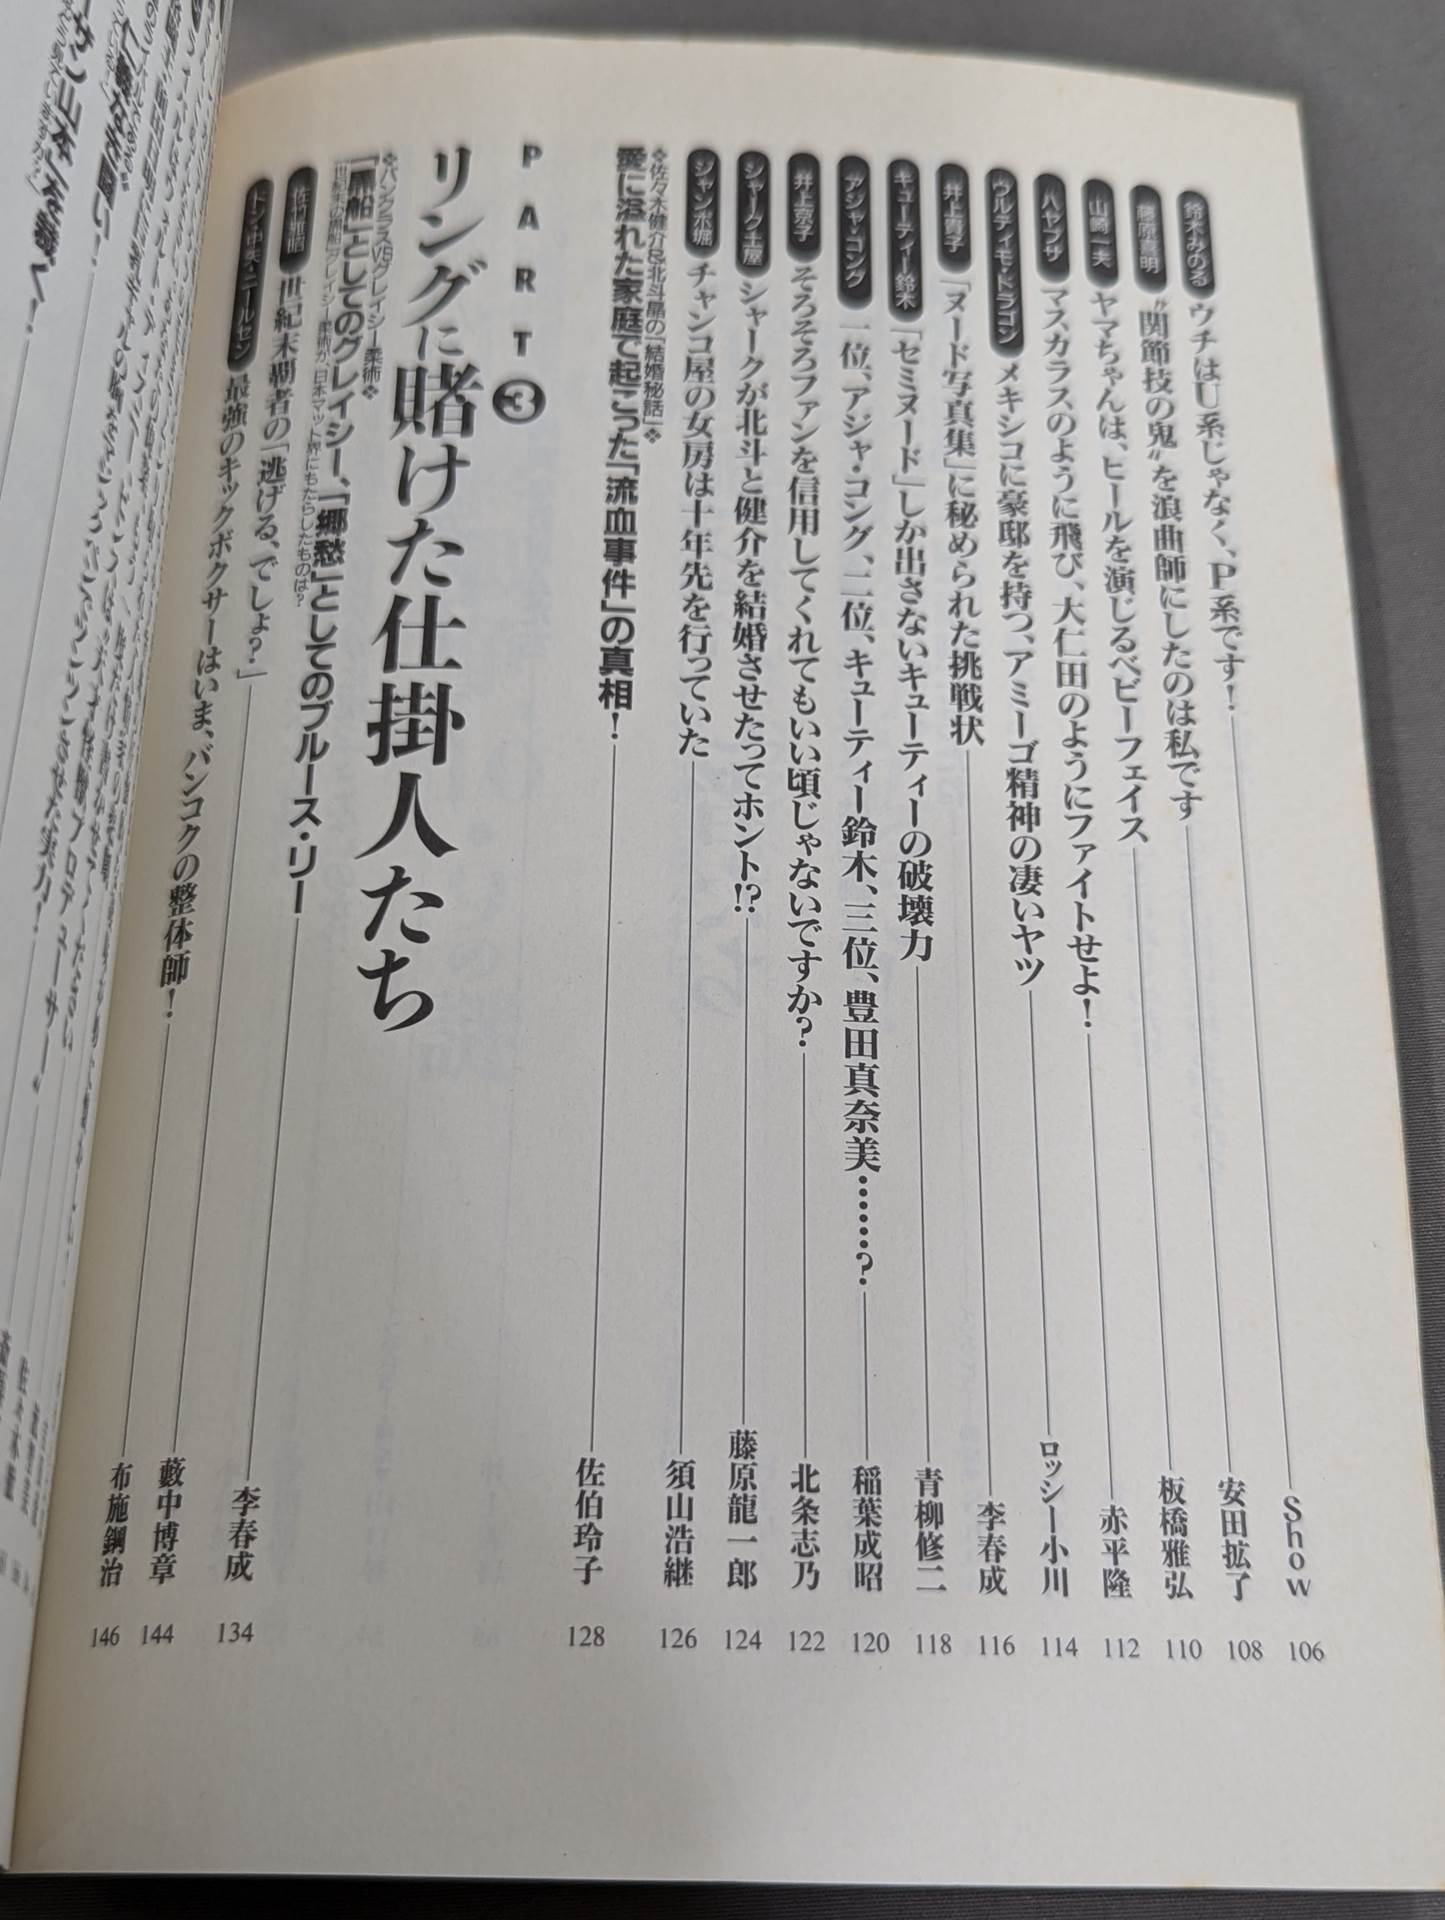 鈴木みのる ウチはU系じゃなく、P系です! Show 106
藤原喜明 “関節技の鬼”を浪曲師にしたのは私です 安田拡了 108
山崎一夫 ヤマちゃんは、ヒールを演じるベビーフェイス 板橋雅弘 110
ハヤブサ マスカラスのように飛び、大仁田のようにファイトせよ! 赤平隆 112
ウルティモ・ドラゴン メキシコに豪邸を持つ、アミーゴ精神の凄いヤツ ロッシー小川 114
井上貴子 「ヌード写真集」に秘められた挑戦状 李春成 116
キューティー鈴木 「セミヌード」しか出さないキューティーの破壊力 青柳修二 118
アジャ・コング 一位、アジャ・コング、二位、キューティー鈴木、三位、豊田真奈美……? 稲葉成昭 120
井上京子 そろそろファンを信用してくれてもいい頃じゃないですか? 北条志乃 122
シャーク土屋 シャークが北斗と健介を結婚させたってホント!? 藤原龍一郎 124
ジャンボ堀 チャンコ屋の女房は十年先を行っていた 須山浩継 126
❖佐々木健介&北斗晶の「結婚秘話」❖
愛に溢れた家庭で起こった「流血事件」の真相! 佐伯玲子 128
PART3
リングに賭けた仕掛人たち
❖パンクラスVSグレイシー柔術❖
「黒船」としてのグレイシー、「郷愁」としてのブルース・リー 李春成 134
世紀末の黒船「グレイシー柔術」が、日本マット界にもたらしたものは?
佐山雅昭 世紀末覇者の「逃げる、でしょ?」 藪中博章 144
ドン・中矢・ニールセン 最強のキックボクサーはいま、バンコクの整体師! 布施鋼治 146